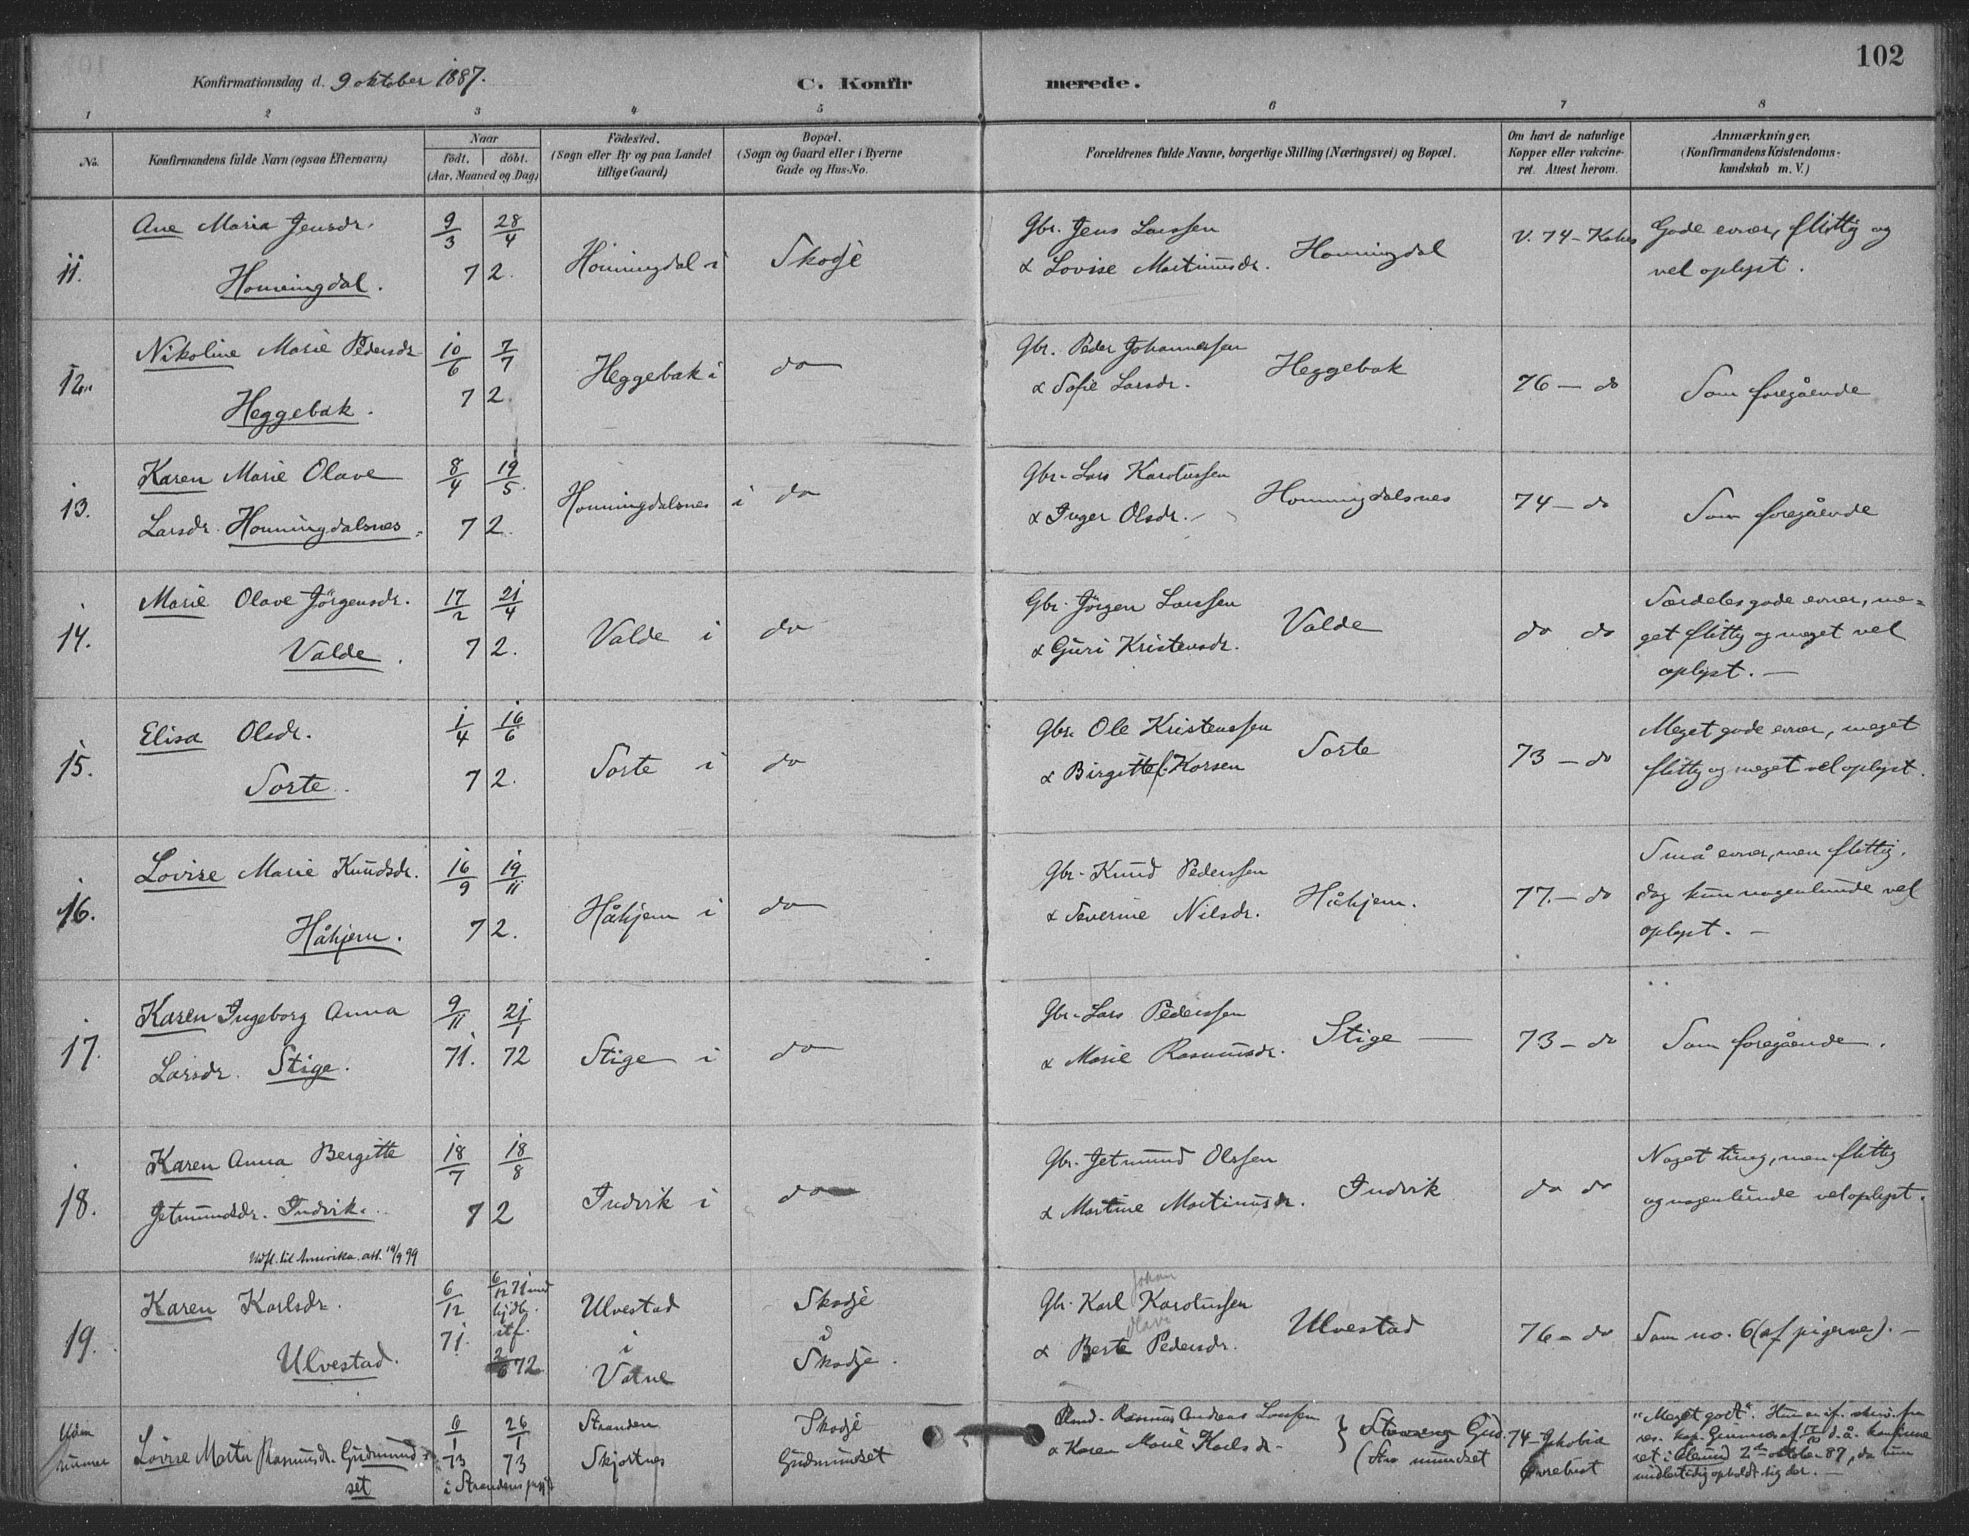 102
Konfirmationsdag d. 9 oktober 1887.
C. Konfirmerede.
1 2 3 4 5 6 7 8
No.
Konfirmandens fulde Navn (ogsaa Efternavn)
Naar
født. døbt.
(Aar, Maaned og Dag)
Födested.
(Sogn eller By og paa Landet
tillige Gaard)
Bopæl.
(Sogn og Gaard eller i Byerne
Gade og Hus-No.
Forældrenes fulde Navne, borgerlige Stilling (Næringsvei) og Bopæl.
Om havt de naturlige
Kopper eller vakcine-
ret. Attest herom.
Anmærkninger.
(Konfirmandens Kristendoms-
kundskab m. V.)
11. Ane Maria Jensdr. 9/3 28/4 Honningdal i Skodje Gbr. Jens Larssen Honningdal V. 74 – Gode evner, flittig og
Honningdal. 72. & Lovise Martinusdr. vel oplyst.
12. Nikoline Marie Pedersdr 10/6 7/7 Heggebak i do Gbr. Peder Johannessen Heggebak 76 – do Som foregående
Heggebak. 72. & Sofie Larsdr.
13. Karen Marie Olave 8/4 19/5. Honningdalsnes i do Gbr. Lars Karolussen Honningdalsnes 74 – do Som foregående
Larsdr. Honningdalsnes. 72. & Inger Olsdr.
14. Marie Olave Jörgensdr. 17/2 21/4 Valde i do Gbr. Jörgen Larssen Valde do do Særdeles gode evner, me=
Valde. 72. & Guri Kristensdr. get flittig og meget vel
oplyst. –
15. Elisa Olsdr. 1/4 16/6 Sorte i do Gbr. Ole Kristenssen Sorte 73 – do Meget gode evner, meget
Sorte. 72. & Birgitte f. Korsen flittig og meget vel oplyst.
16. Lovise Marie Knudsdr. 16/9 19/11 Håhjem i do Gbr. Knud Pederssen Håhjem. 77. – do Små evner, men flittig,
Håhjem. 72. & Severine Nilsdr. dog kun nogenlunde vel
oplyst. –
17. Karen Ingeborg Anna 9/11 21/1 Stige i do Gbr. Lars Pederssen Stige 73 – do Som foregående.
Larsdr. Stige. 71. 72 & Marie Rasmusdr.
18. Karen Anna Bergitte 18/7 18/8 Indvik i do Gbr. Jetmund Olssen Indvik do do Noget tung, men flittig
Jetmundsdr. Indvik. 72 & Martine Martinusdr. og nogenlunde vel oplyst.
Udfl. til Amerika. att. 19/9 99
19. Karen Karlsdr. 6/12 71. 6/12 71 hjdb. itf. 72 Ulvestad i Vatne Skodje i Skodje. Gbr. Karl Johan Karolussen Ulvestad 76 – do Som no. 6 (af pigerne). –
Ulvestad. & Berte Olave Pedersdr.
Uden nummer Lovise Marta Rasmusdr. Gudmund= 6/1 73 26/1 73 Stranden Skodje Rasmus Andreas Larssen 74 – Jakobia "Meget godt".
set i Strandens Skjortnes Gudmundset & Karen Marie Karlsdr. mundset Övrebust
ret i Ålesund 2 oktober 87, da hun
midlertidig opholdt sig der. –